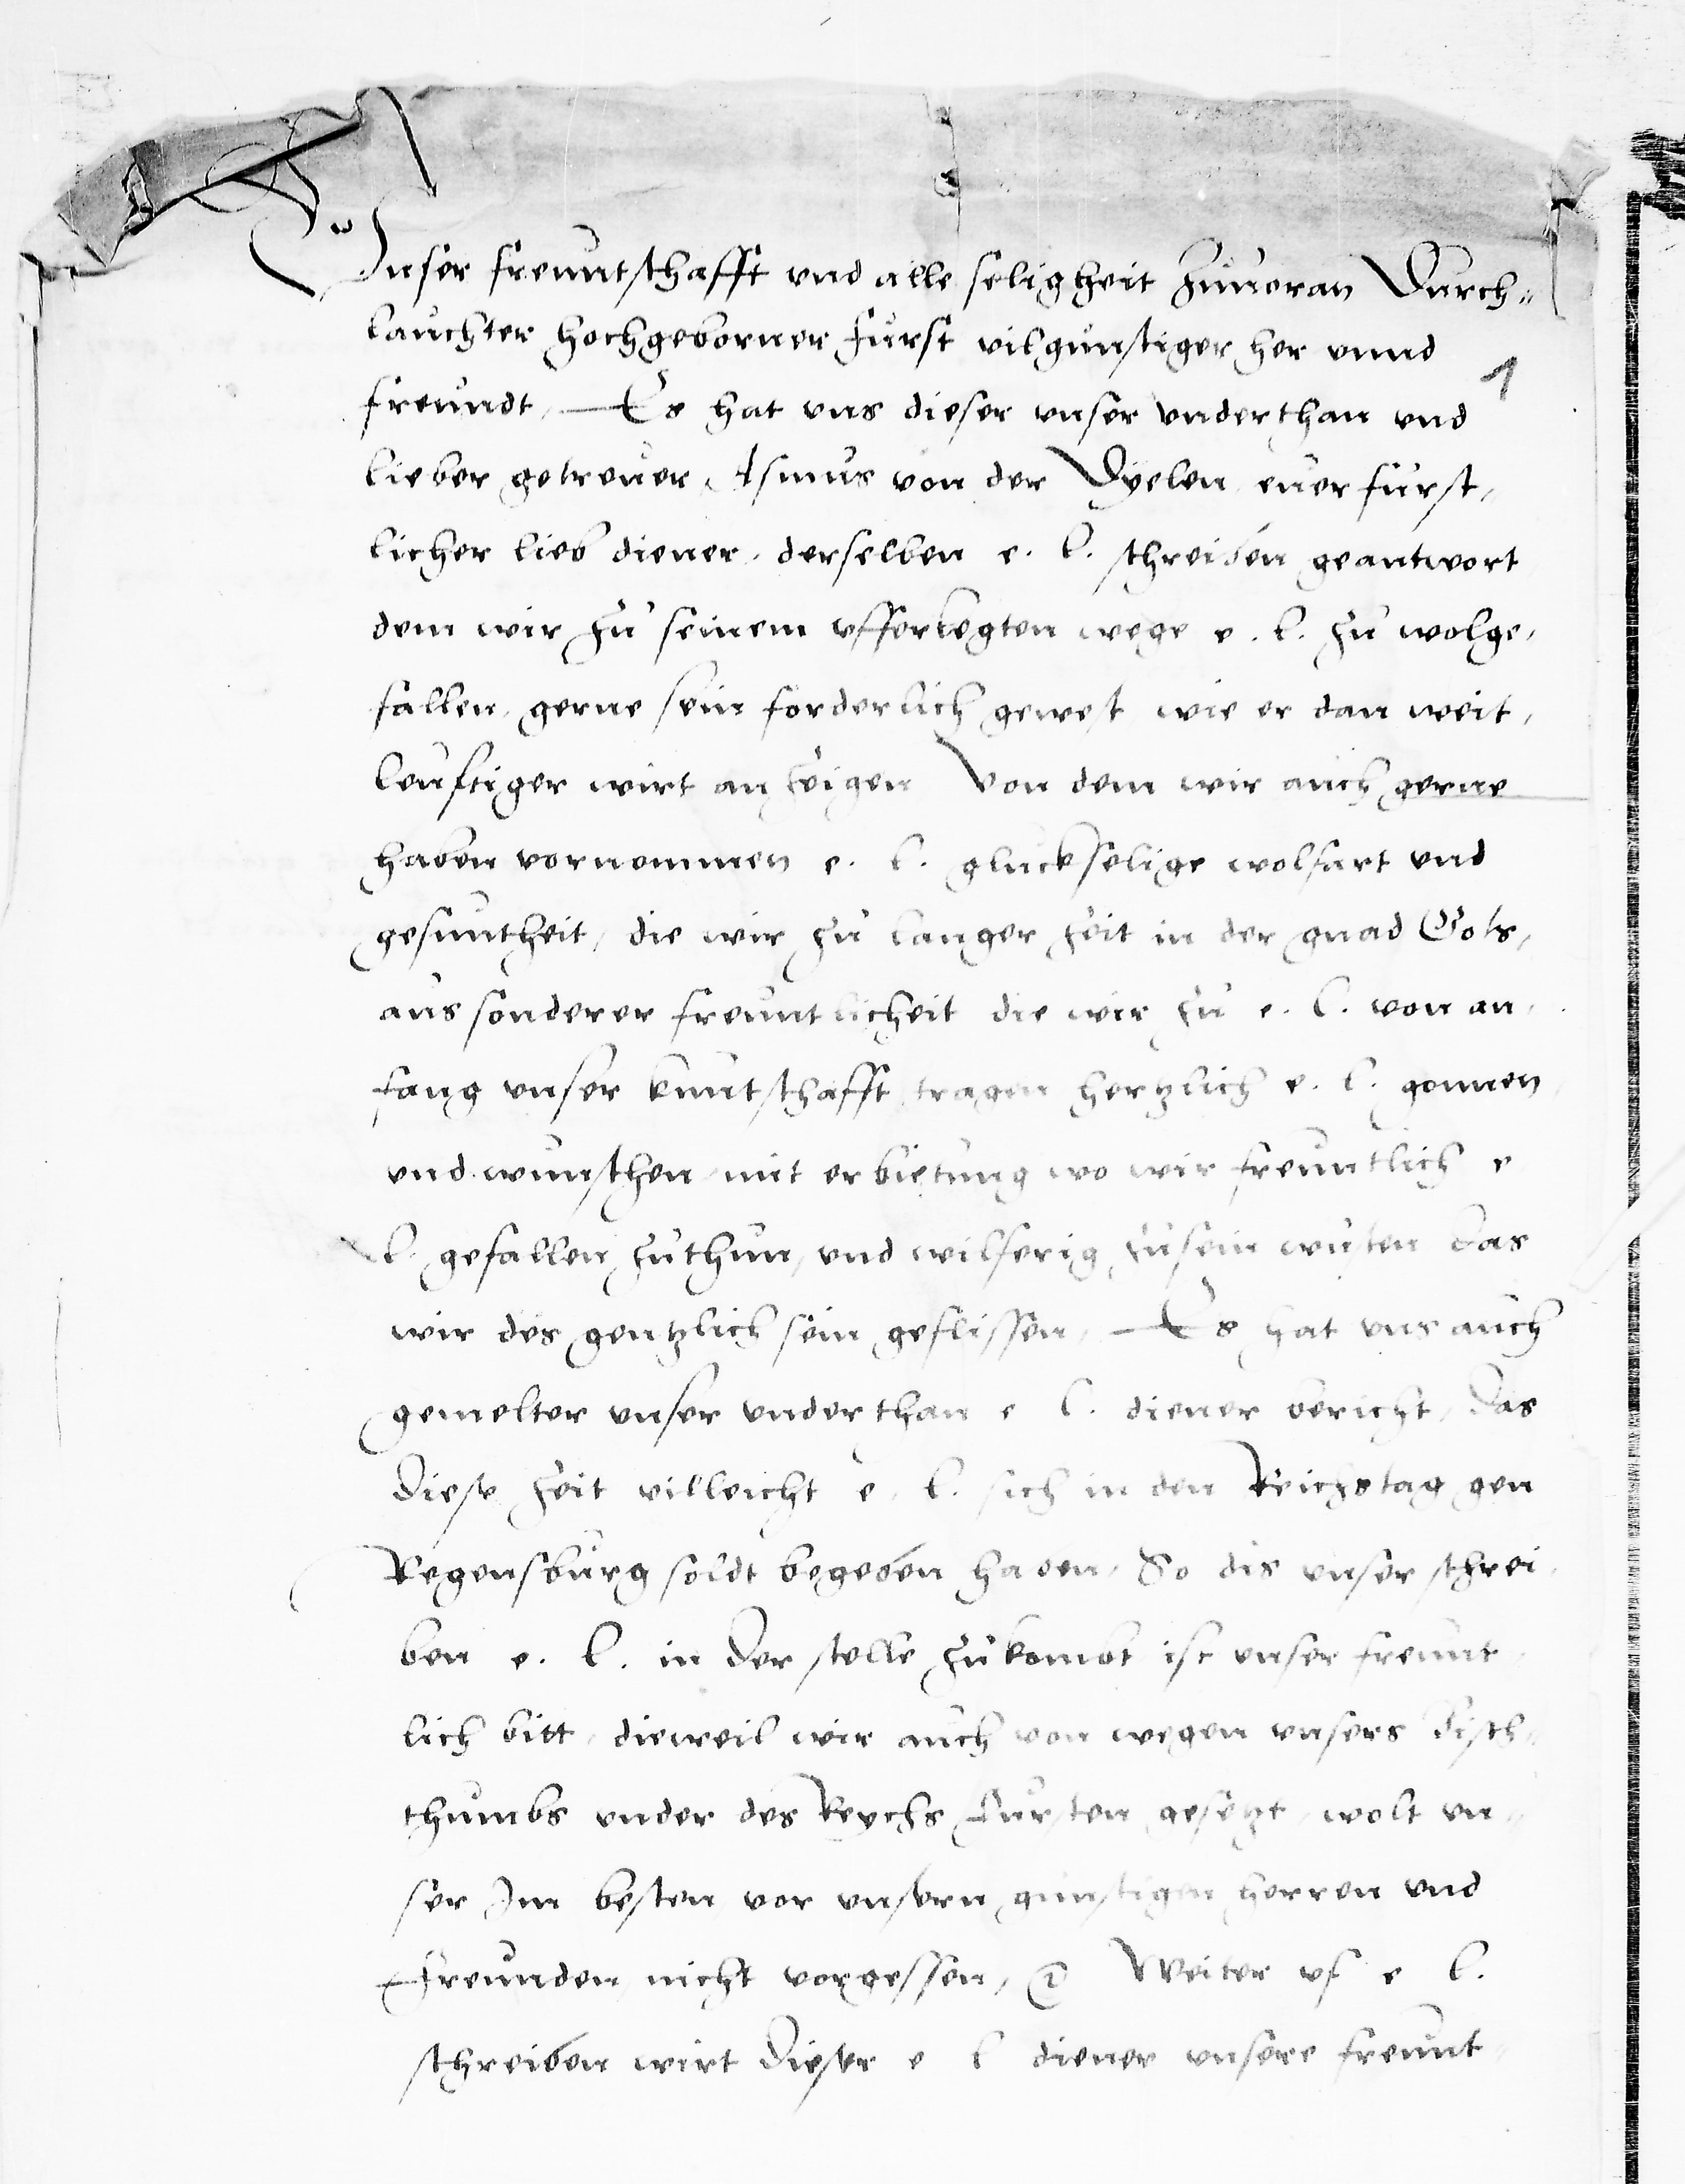 Unser freuntschafft vnd alle seligheit zuuoran Durch=
lauchter hochgeborner furst vilgunstiger her vnnd
1
freundt, Es hat vns dieser vnser vnderthan vnd
lieber getreuer, Asmus von der Dyelen, euer furst,
licher lieb diener, derselben e. l. schreiben geantwort
dem wir zu seinem vfferlegten wege e. l. zu wolge,
fallen, gerne sein forderlich gewest wie er dan weit,
leuftiger wirt anzeigen Von dem wir auch gerne
haben vornommen e. l. gluckselige wolfart vnd
gesuntheit, die wir zu langer zeit in der gnad Gots,
aus sonderer freuntlicheit die wir zu e. l. von an,
fang vnser kuntschafft tragen hertzlich e. l. gonnen,
vnd wunschen mit erbietung wo wir freuntlich e
l. gefallen zuthun, vnd wilferig zusein wusten das
wir des gentzlich sein geflissen, Es hat vns auch
gemelter vnser vnderthan e l. diener bericht, das
diese zeit villeicht e. l. sich in den Reichstag gen
Regensburg soldt begeben haben, So dis vnser schrei,
ben e. l. in der stelle zukombt ist vnser freunt,
lich bitt, dieweil wir auch von wegen vnsers Bisch=
thumbs vnder des Reychs fursten gesetzt, wolt vn=
ser Im besten vor vnsern gunstigen herren vnd
freunden nicht vorgessen, Weiter vf e l.
schreiben wirt dieser e l diener vnsere freunt=